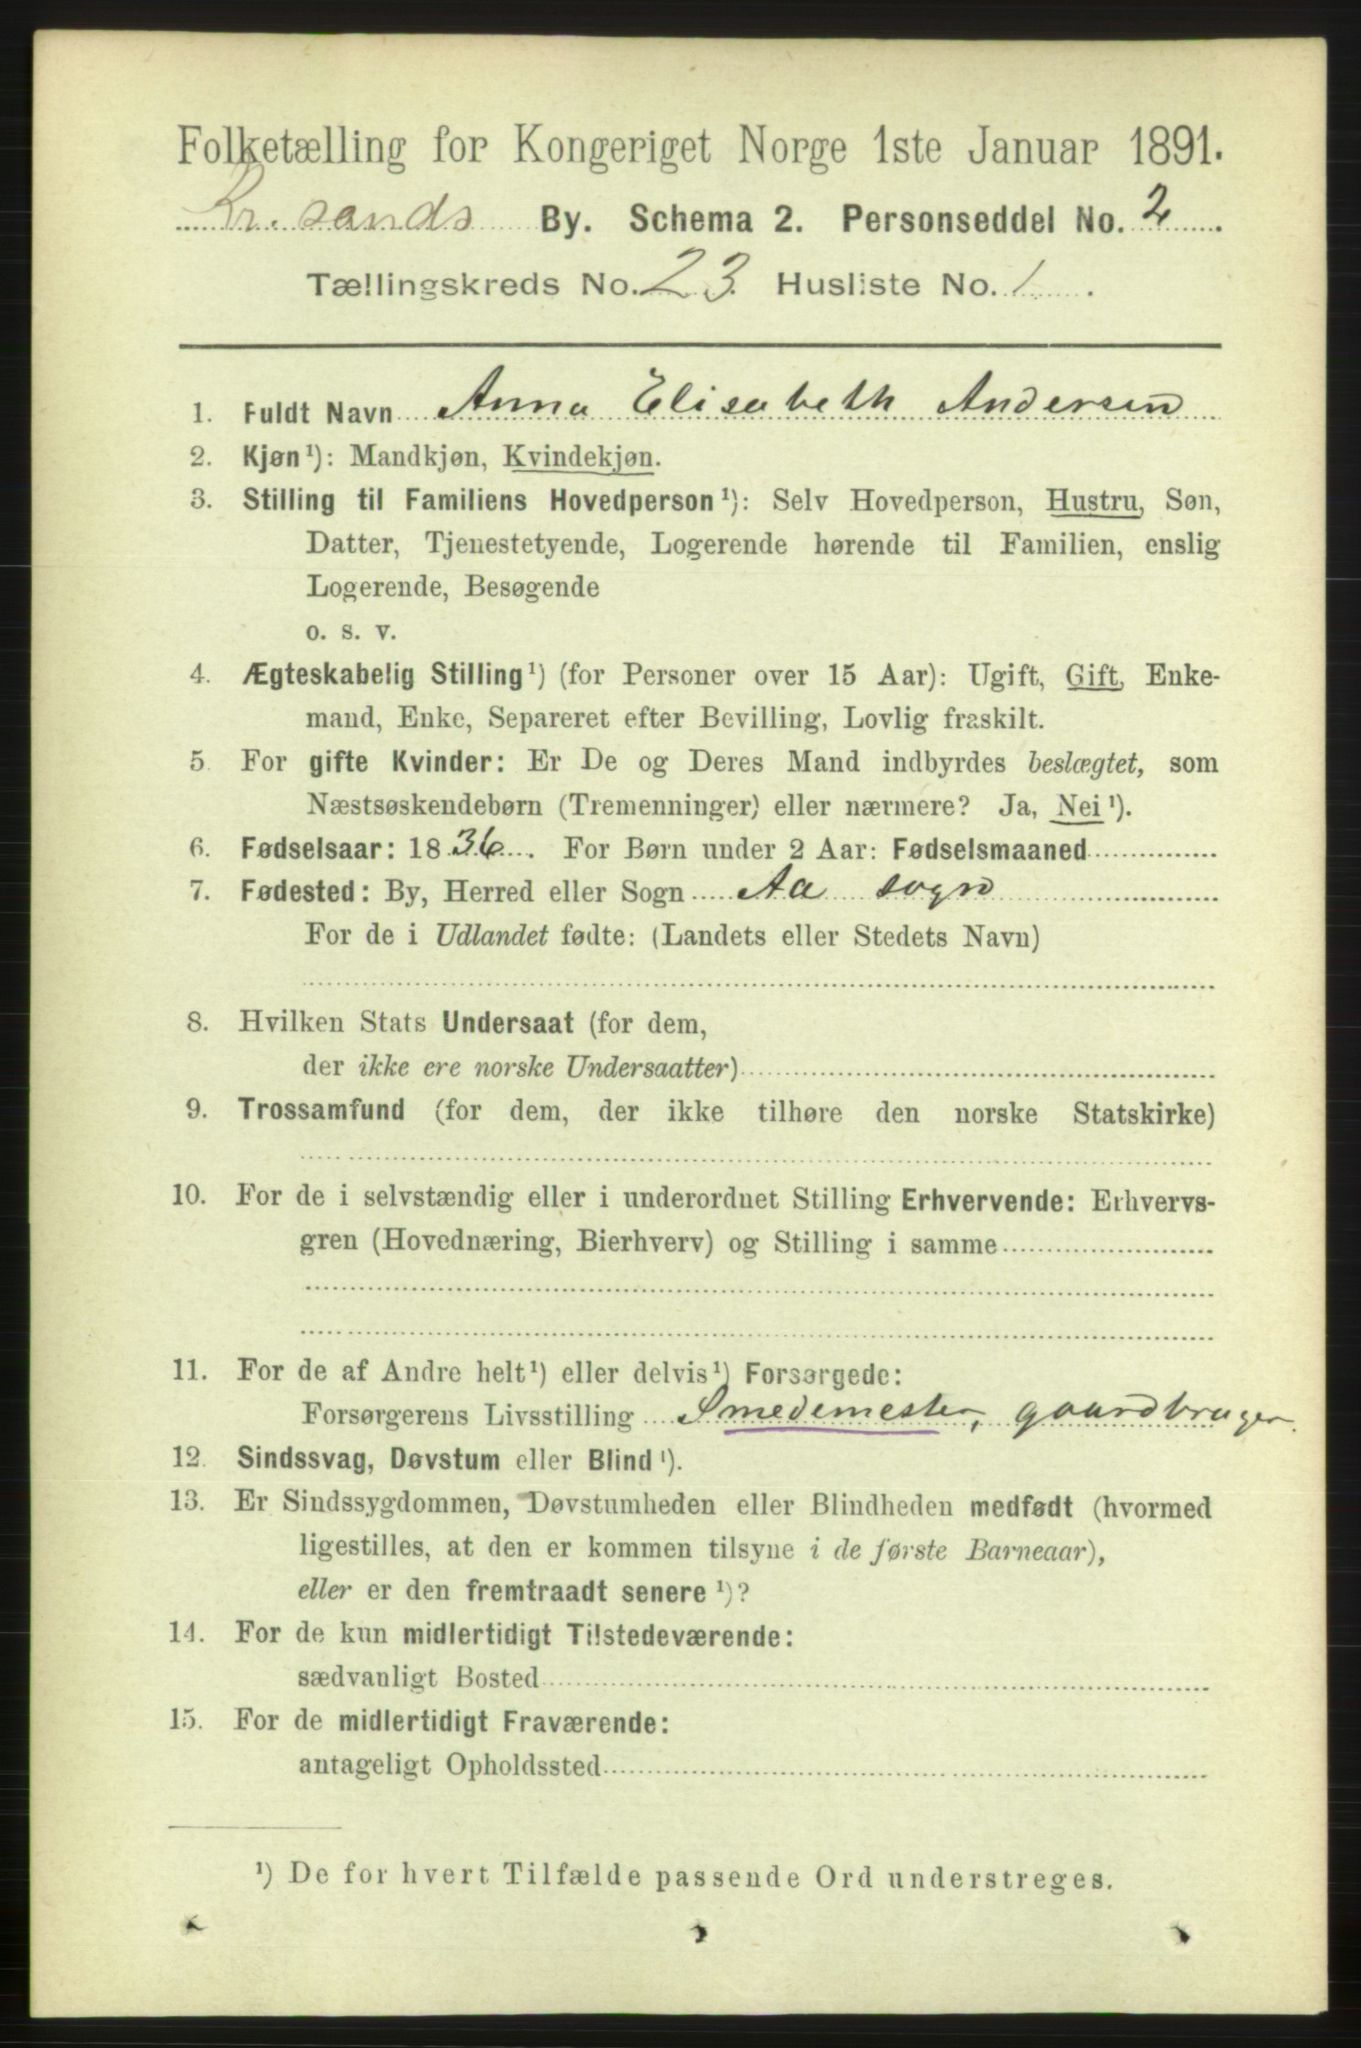 Folketælling for Kongeriget Norge 1ste Januar 1891.
Kr. sands By. Schema 2. Personseddel No. 2
Tællingskreds No. 23 Husliste No. 1
1. Fuldt Navn Anna Elisabeth Andersen
2. Kjøn¹): Mandkjøn, Kvindekjøn.
3. Stilling til Familiens Hovedperson¹): Selv Hovedperson, Hustru, Søn,
Datter, Tjenestetyende, Logerende hørende til Familien, enslig
Logerende, Besøgende
o. s. v.
4. Ægteskabelig Stilling¹) (for Personer over 15 Aar): Ugift, Gift, Enke-
mand, Enke, Separeret efter Bevilling, Lovlig fraskilt.
5 For gifte Kvinder: Er De og Deres Mand indbyrdes beslægtet, som
Næstsøskendebørn (Tremenninger) eller nærmere? Ja, Nei¹).
6. Fødselsaar: 1836. For Børn under 2 Aar: Fødselsmaaned
7. Fødested: By, Herred eller Sogn Aa sogn
For de i Udlandet fødte: (Landets eller Stedets Navn)
8. Hvilken Stats Undersaat (for dem,
der ikke ere norske Undersaatter)
9. Trossamfund (for dem, der ikke tilhøre den norske Statskirke)
10. For de i selvstændig eller i underordnet Stilling Erhvervende: Erhvervs-
gren (Hovednæring, Bierhverv) og Stilling i samme
11. For de af Andre helt¹) eller delvis¹) Forsørgede:
Forsørgerens Livsstilling Smedemester, gaardbruger.
12. Sindssvag, Døvstum eller Blind¹).
13. Er Sindssygdommen, Døvstumheden eller Blindheden medfødt (hvormed
ligestilles, at den er kommen tilsyne i de første Barneaar),
eller er den fremtraadt senere¹)?
14. For de kun midlertidigt Tilstedeværende:
sædvanligt Bosted
15. For de midlertidigt Fraværende:
antageligt Opholdssted
¹) De for hvert Tilfælde passende Ord understreges.